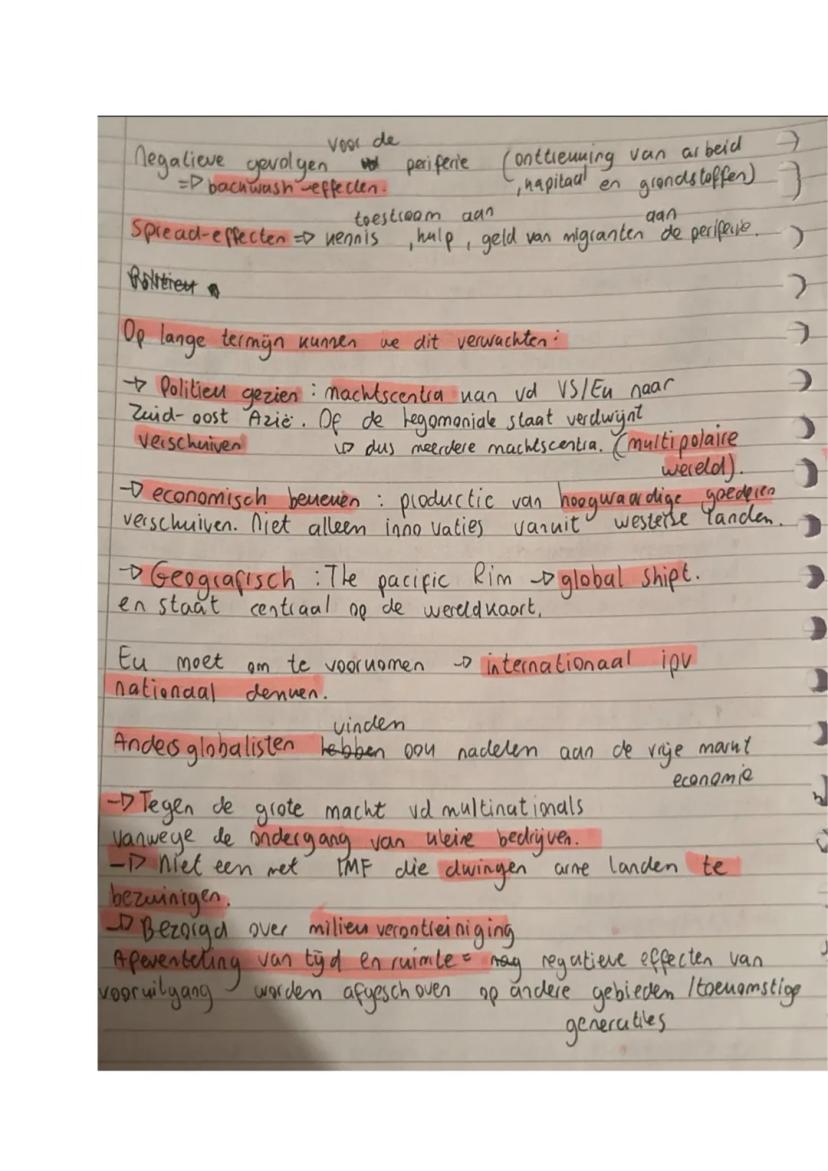 voor de
Negatieve gevolgen periferie (onttrekking van arbeid
=> backwash-effecten. , kapitaal en grondstoffen)
toestroom aan aan
Spread-effecten => kennis , hulp , geld van migranten de periferie.
Politiek
Op lange termijn kunnen we dit verwachten:
→ Politiek gezien : machtscentra kan vd VS/Eu naar
Zuid-oost Azië. Of de hegomoniale staat verdwijnt
verschuiven ↳ dus meerdere machtscentra. (multipolaire
wereld).
→ economisch bekeken : productie van hoogwaardige goederen
verschuiven. Niet alleen innovaties vanuit westerse landen.
→ Geografisch : The pacific Rim → global shift.
en staat centraal op de wereldkaart.
Eu moet om te voorkomen → internationaal ipv
nationaal denken.
vinden
Andersglobalisten hebben ook nadelen aan de vrije markt
economie
→ Tegen de grote macht vd multinationals
vanwege de ondergang van kleine bedrijven.
→ Niet een met IMF die dwingen arme landen te
bezuinigen.
→ Bezorgd over milieu verontreiniging
Afwenteling van tijd en ruimte = negatieve effecten van
vooruitgang worden afgeschoven op andere gebieden /toekomstige
generaties